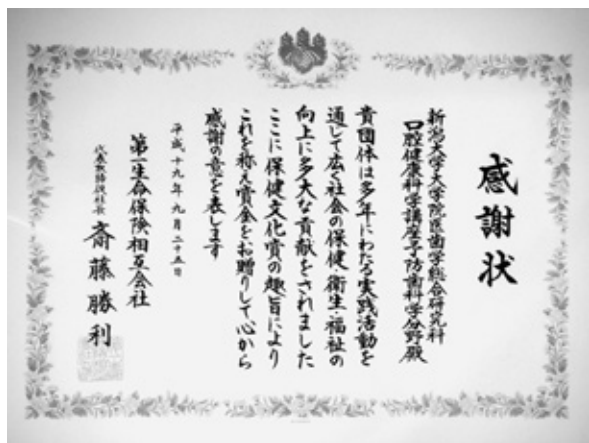 感謝状
新潟大学大学院医歯学総合研究科
口腔健康科学講座予防歯科学分野殿
貴団体は多年にわたる実践活動を
通して広く社会の保健・衛生・福祉の
向上に多大な貢献をされました
ここに保健文化賞の趣旨により
これを称え賞金をお贈りして心から
感謝の意を表します
平成十九年九月二十五日
第一生命保険相互会社
代表取締役社長 斎藤勝利